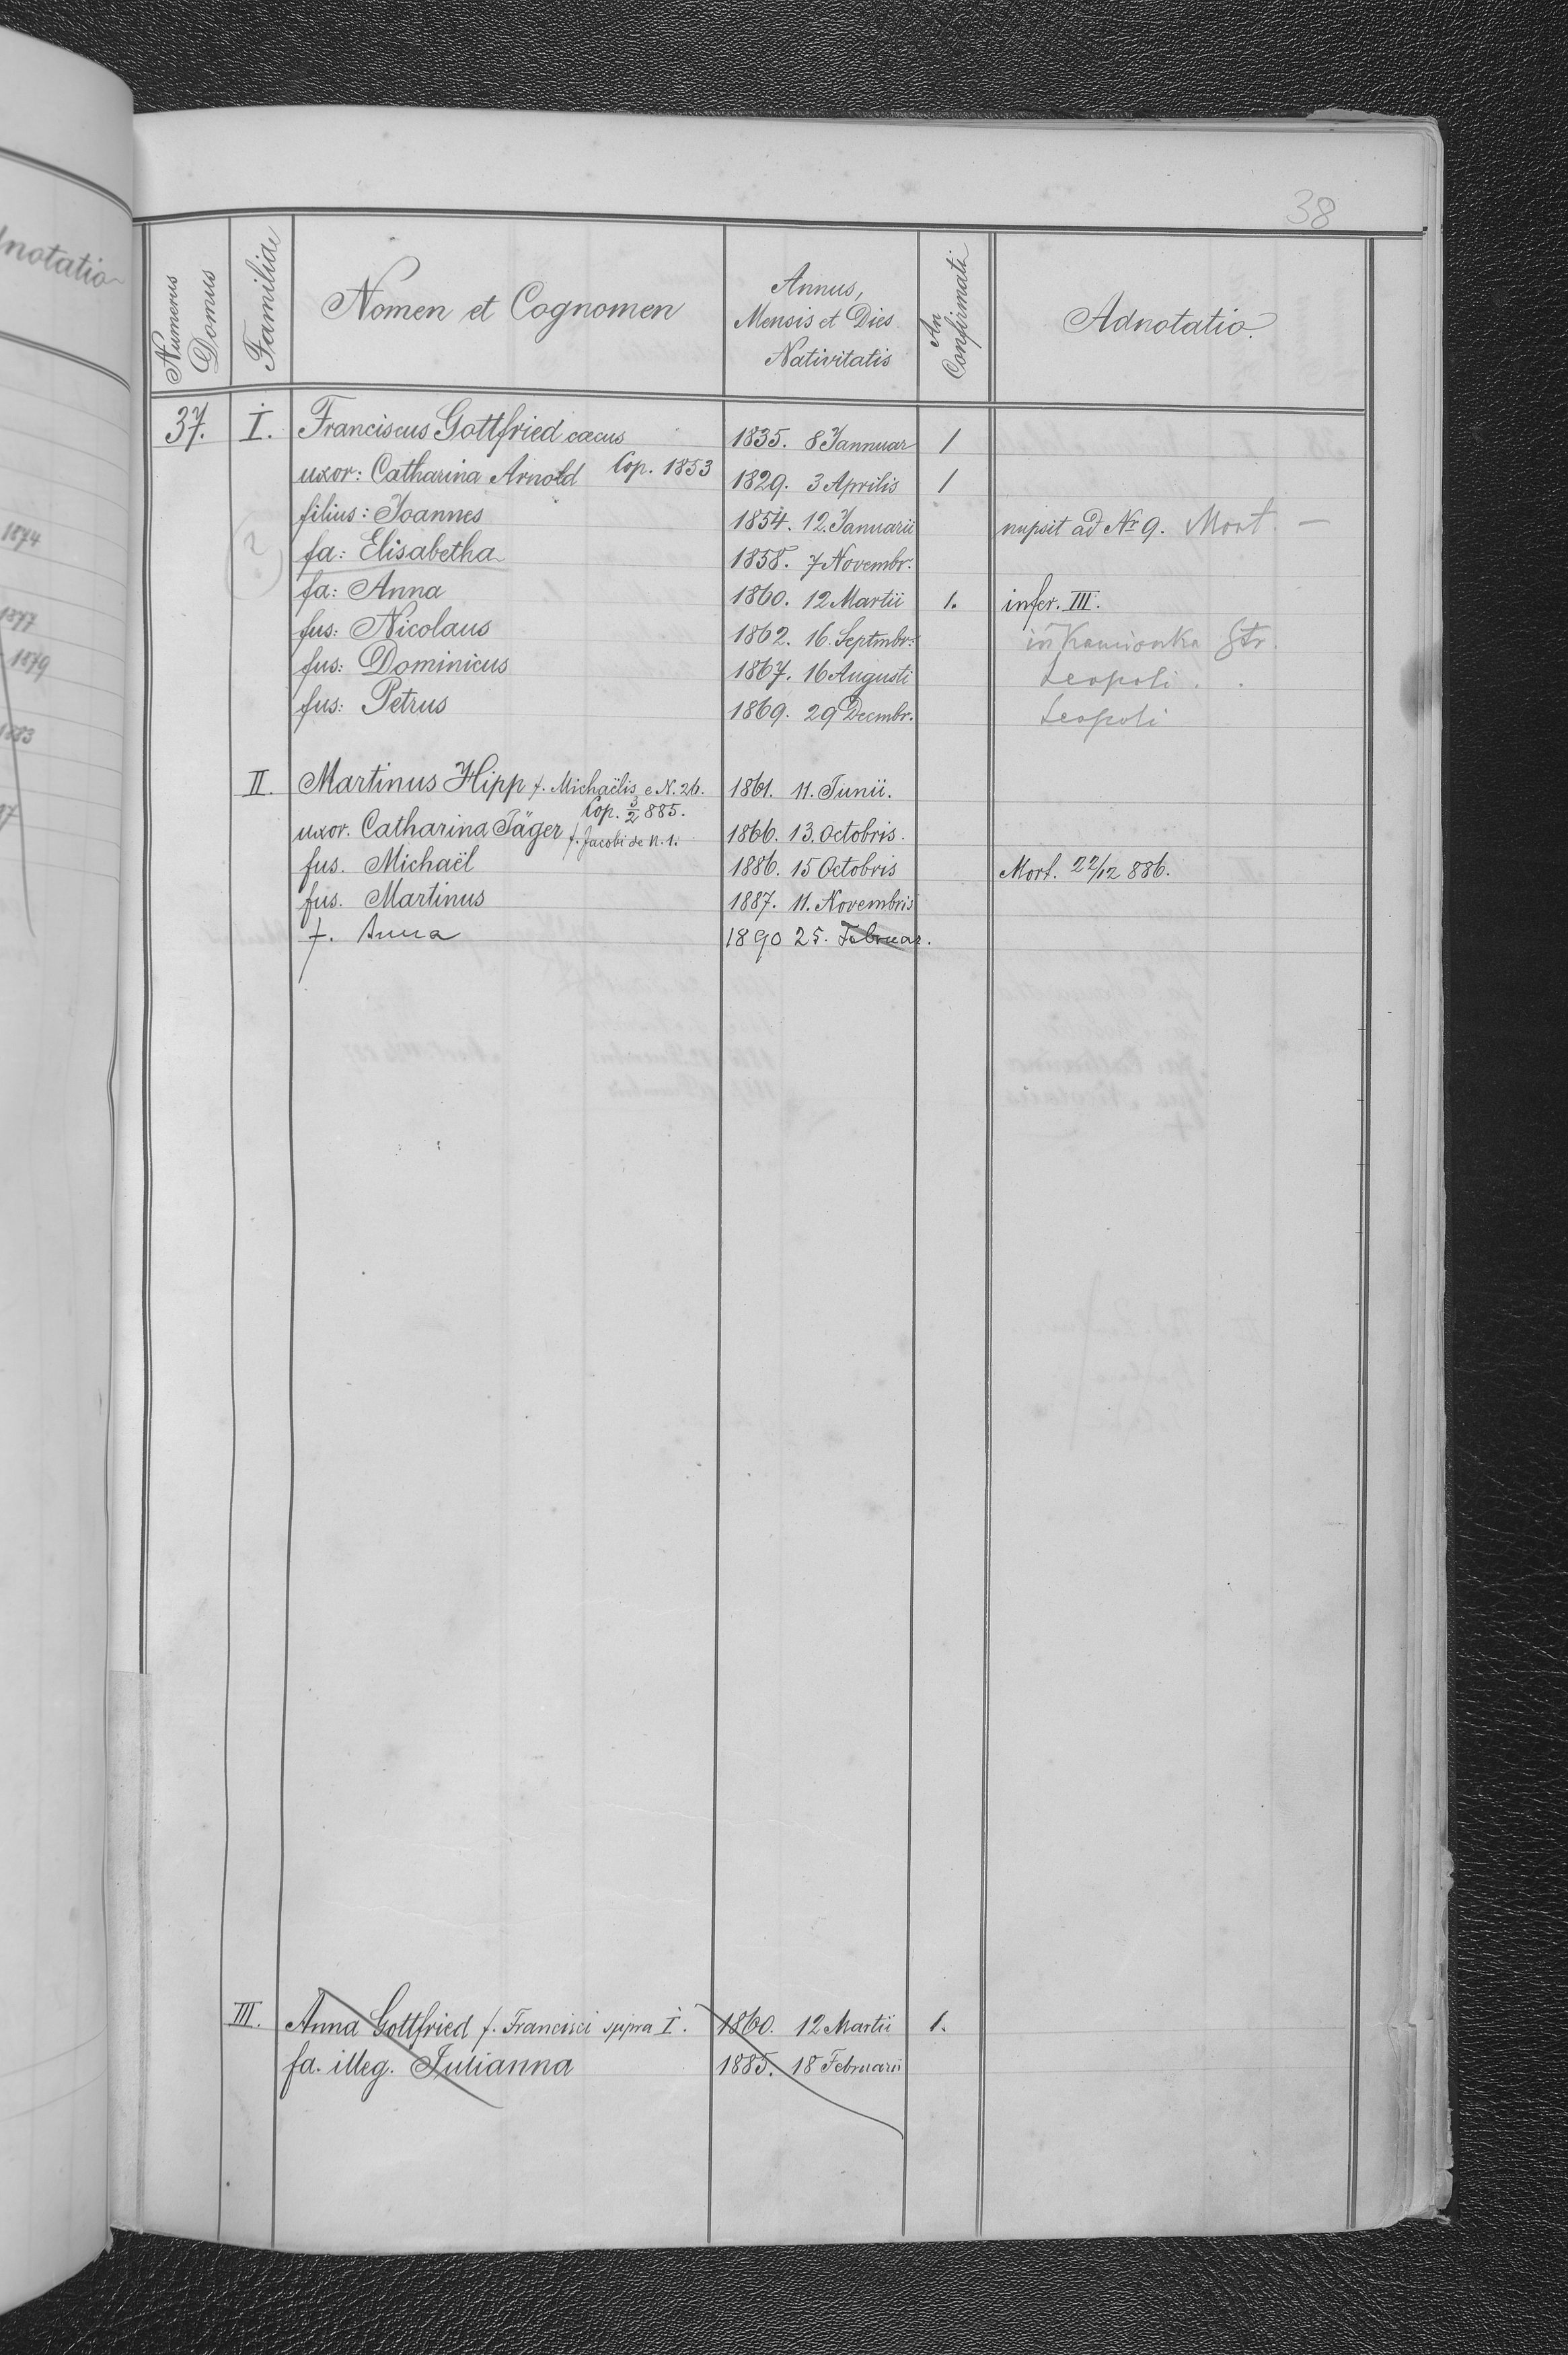 38
Numerus Domus
Familia
Nomen et Cognomen
Annus, Mensis et Dies Nativitatis
An Confirmati
Adnotatio.
37. I. Franciscus Gottfried cœcus 1835. 8 Jannuar 1
uxor: Catharina Arnold Cop. 1853 1829. 3 Aprilis 1
filius: Joannes 1854. 12. Januarii nupsit ad № 9. Mort. —
(?) fa: Elisabetha 1858. 7 Novembr.
fa: Anna 1860. 12 Martii 1. infer. III.
fus: Nicolaus 1862. 16. Septmbr: in Kamionka Str.
fus: Dominicus 1867. 16 Augusti Leopoli.
fus: Petrus 1869. 29 Decmbr. Leopoli
II. Martinus Hipp f. Michaëlis e N. 26. 1861. 11. Junii.
Cop. 3/2 885.
uxor. Catharina Jäger f. Jacobi de N. 1. 1866. 13. Octobris.
fus. Michaël 1886. 15 Octobris Mort. 22/12 886.
fus. Martinus 1887. 11. Novembris
f. Anna 1890 25. Februar.
III. Anna Gottfried f. Francisci supra I. 1860. 12 Martii 1.
fa. illeg. Julianna 1885. 18 Februarii
notatio
1874
1877
1879
1883